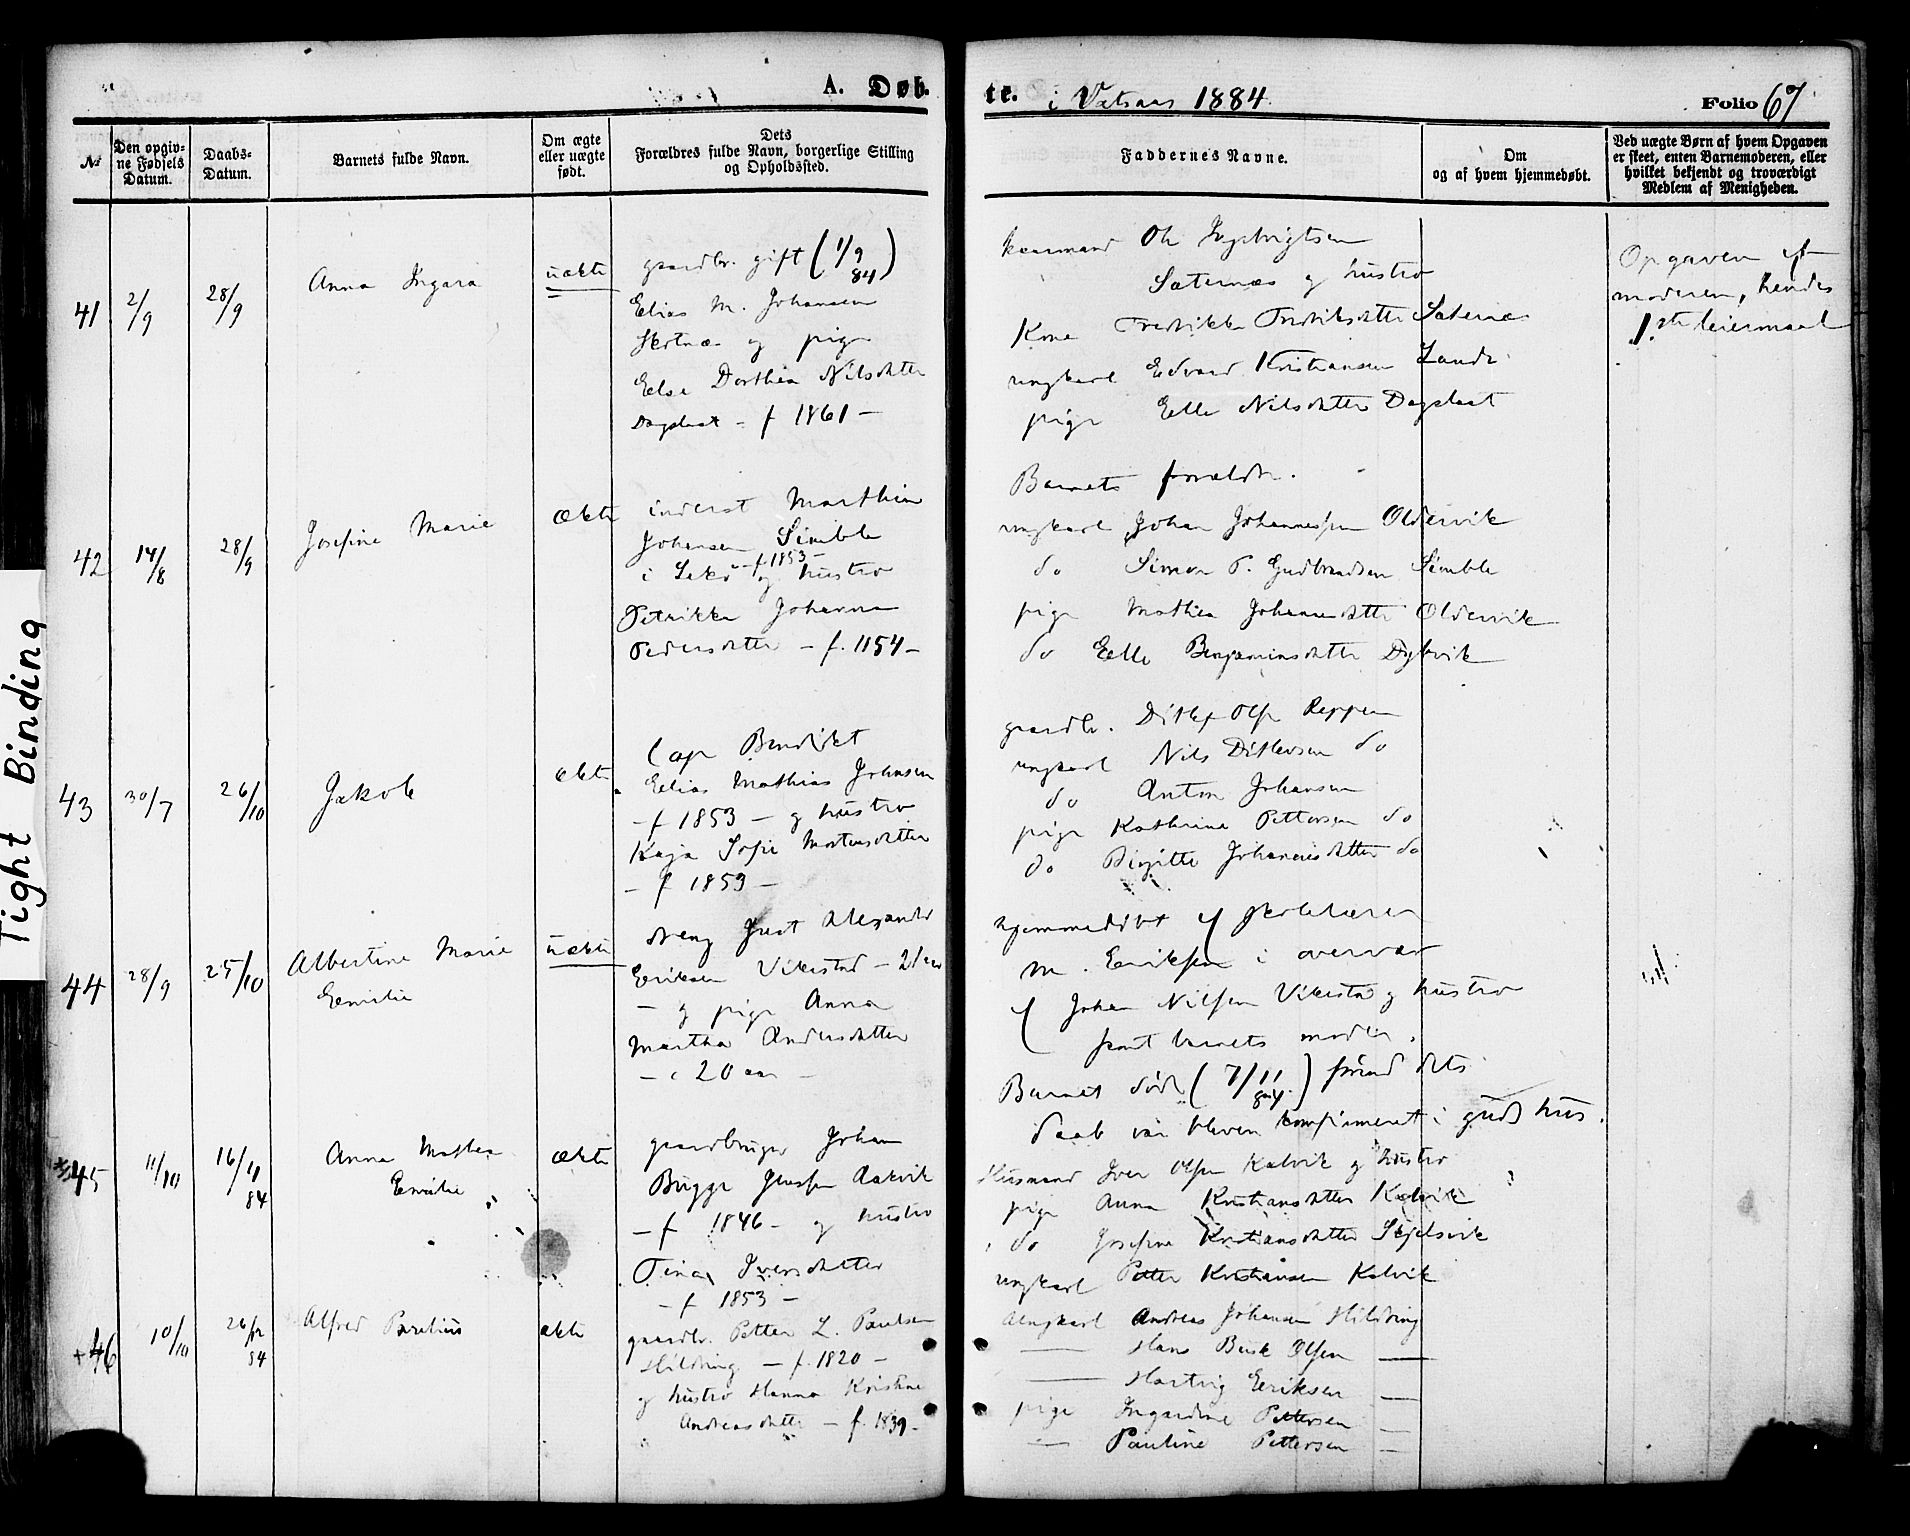 A. Døbte. i Vatsaas 1884
Folio 67
№
Den opgivne Fødsels Datum.
Daabs-Datum.
Barnets fulde Navn.
Om ægte eller uægte født.
Dets Forældres fulde Navn, borgerlige Stilling og Opholdssted.
Faddernes Navne.
Om og af hvem hjemmedøbt.
Ved uægte Børn af hvem Opgaven er skeet, enten Barnemoderen, eller hvilket bekjendt og troværdigt Medlem af Menigheden.
41
2/9
28/9
Anna Ingara
uækte
gaardbr. gift (1/9 84)
Elias M. Johansen
og pige
Else Dorthea Nilsdatter
f 1861 —
Ole
Sæternæs og hustro
Kone Fredrikke Fredriksdatter Sæternæs
ungkarl Edvard Kristiansen Lande
pige Elle Nilsdatter
Opgaven af
moderen, hendes
1ste leiermaal
42
14/8
28/9
Josefine Marie
Ækte
inderst Marthin
Johansen Simble
f 1853 —
i Lekø og hustro
Petrikke Johanna
Pedersdatter — f. 1154 —
Barnets forældre.
ungkarl Johan Johannessen Oldervik
do Simon P. Gudbrandsen Simble
pige Mathea Johannesdatter Oldervik
do Elle Benjaminsdatter Dybvik
43
30/7
26/10
Jakob
ekte
Benedikt
Elias Mathias Johnsen
— f 1853 — og hustro
Kaja Sofie Mortensdatter
— f 1853 —
gaardbr. Ditlef Olsen Reppen
ungkarl Nils Ditlevsen do
do Anton Johansen
pige Kathrine Pettersen do
do Birgitte Johannesdatter do
44
28/9
25/10
Albertine Marie
Eemilie
uækte
dreng Just Alexander
Eeriksen Vikestad —
— og pige Anna
Martha Andersdatter
— 20 aar —
hjemmedøbt af skolelærer
M. Eeriksen i overvær
af Johan Nilsen Vikestad og hustro
samt barnets moder.
Barnet døde (7/11 84.) førend dets
daab var bleven i guds hus.
45
11/10
16/11 84
Anna Mathea
Eemilie
ækte
gaardbruger Johan
Brygge Jenssen Aakvik
— f 1846 — og hustro
Tina Iversdatter
— f 1853 —
Husmand Iver Olsen Kalvik og hustro
pige Anna Kristiansdatter Kalvik
do Josefine Kristiansdatter Skjelsvik
ungkarl Petter Kristiansen Kalvik
+46
10/10
26/12 84
Alfred Parelius
ækte
gaardbr. Petter L. Paulsen
Hildring — f. 1820 —
og hustro Hanna Kristine
Andreasdatter — f. 1839 —
Ungkarl Andreas Johansen Hildring
— Hans Busk Olsen —
— Hartvig Eeriksen —
pige Ingardine Pettersen —
— Pauline Pettersen —
Tight Binding